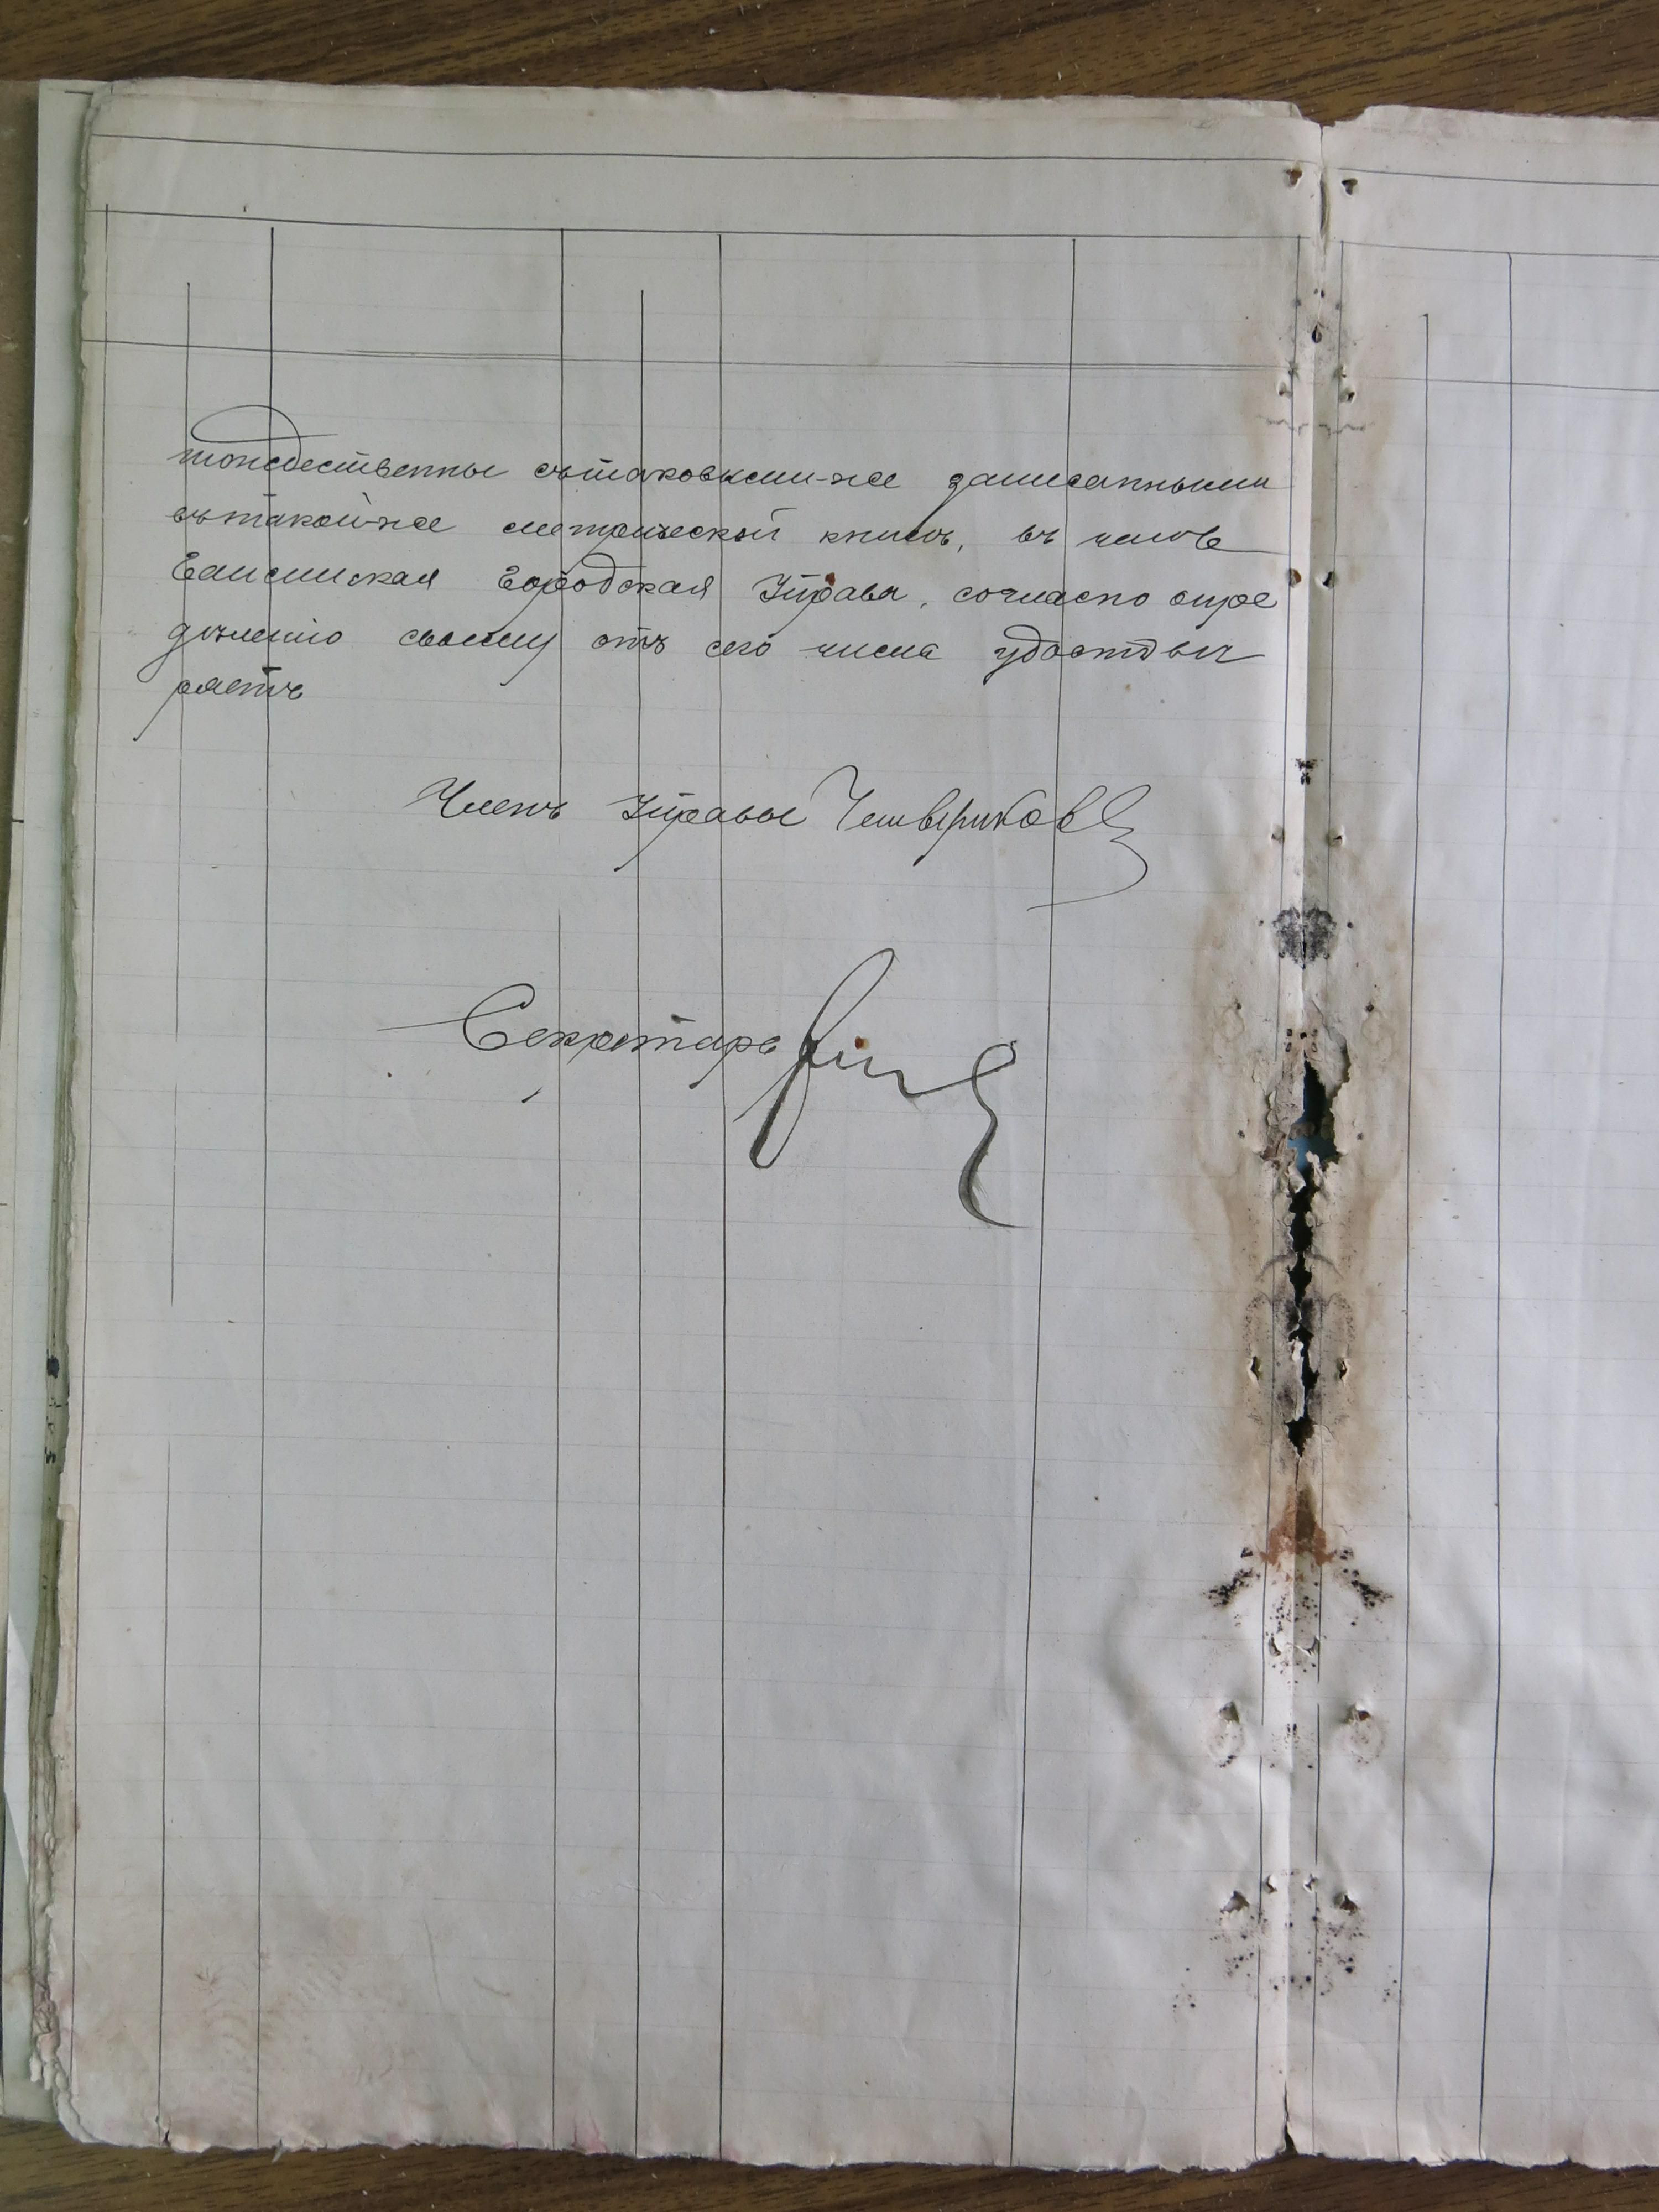 тождественны съ таковыми-же записанными
въ такой-же метрической книгѣ, въ чемъ
Городская Управа, согласно опре
дѣленію своему отъ сего числа удостовѣ
ряетъ
Членъ Управы Четвериковъ
Секретарь